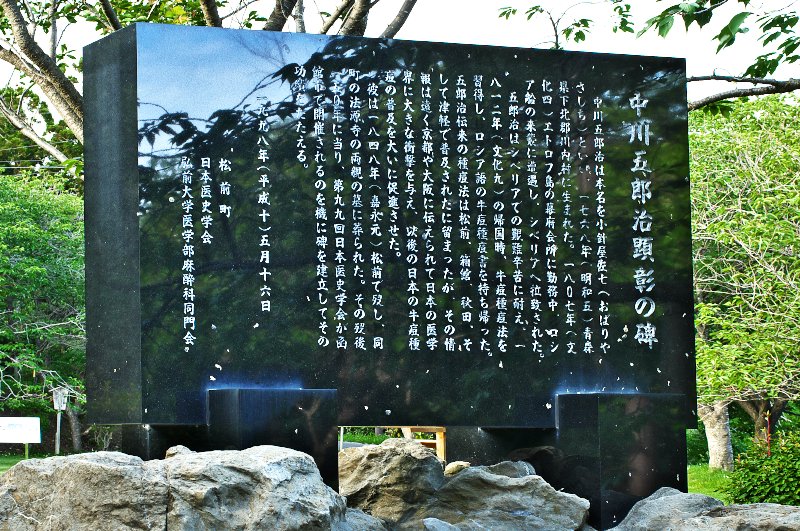 中川五郎治顕彰の碑
中川五郎治は本名を小針屋佐七（おばりや
さしち）といい、一七六八年（明和五）青森
県下北郡川内村に生まれた。一八〇七年（文
化四）エトロフ島の幕府会所に勤務中、ロシ
ア船の来襲に遭遇し、シベリアへ拉致された。
五郎治はシベリアでの艱難辛苦に耐え、一
八一二年（文化九）の帰国時、牛痘種痘法を
習得し、ロシア語の牛痘種痘書を持ち帰った。
五郎治伝来の種痘法は松前、箱館、秋田、そ
して津軽で普及されたに留まったが、その情
報は遠く京都や大阪に伝えられて日本の医学
界に大きな衝撃を与え、以後の日本の牛痘種
痘の普及を大いに促進させた。
彼は一八四八年（嘉永元）松前で歿し、同
町の法源寺の両親の墓に葬られた。その歿後
年に当り、第九九回日本医史学会が函
館市で開催されるのを機に碑を建立してその
功績をたたえる。
一九九八年（平成十）五月十六日
松前町
日本医史学会
弘前大学医学部麻酔科同門会